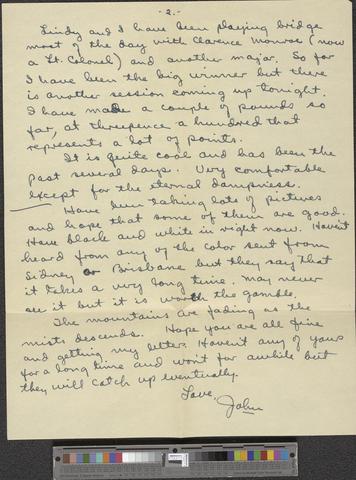 - 2. -
Lindy and I have been playing bridge
most of the day with Clarence Monroe (now
a Lt. Colonel) and another major. So far
I have been the big winner but there
is another session coming up tonight.
I have made a couple of pounds so
far, at threepence a hundred that
represents a lot of points.
It is quite cool and has been the
past several days. Very comfortable
except for the eternal dampness.
Have been taking lots of pictures
and hope that some of them are good.
Have black and white in right now. Haven't
heard from any of the color sent from
Sidney or Brisbane but they say that
it takes a very long time. May never
see it but it is worth the gamble.
The mountains are fading as the
mists descends. Hope you are all fine
and getting my letters. Haven't any of yours
for a long time and won't for awhile but
they will catch up eventually.
Love,
John